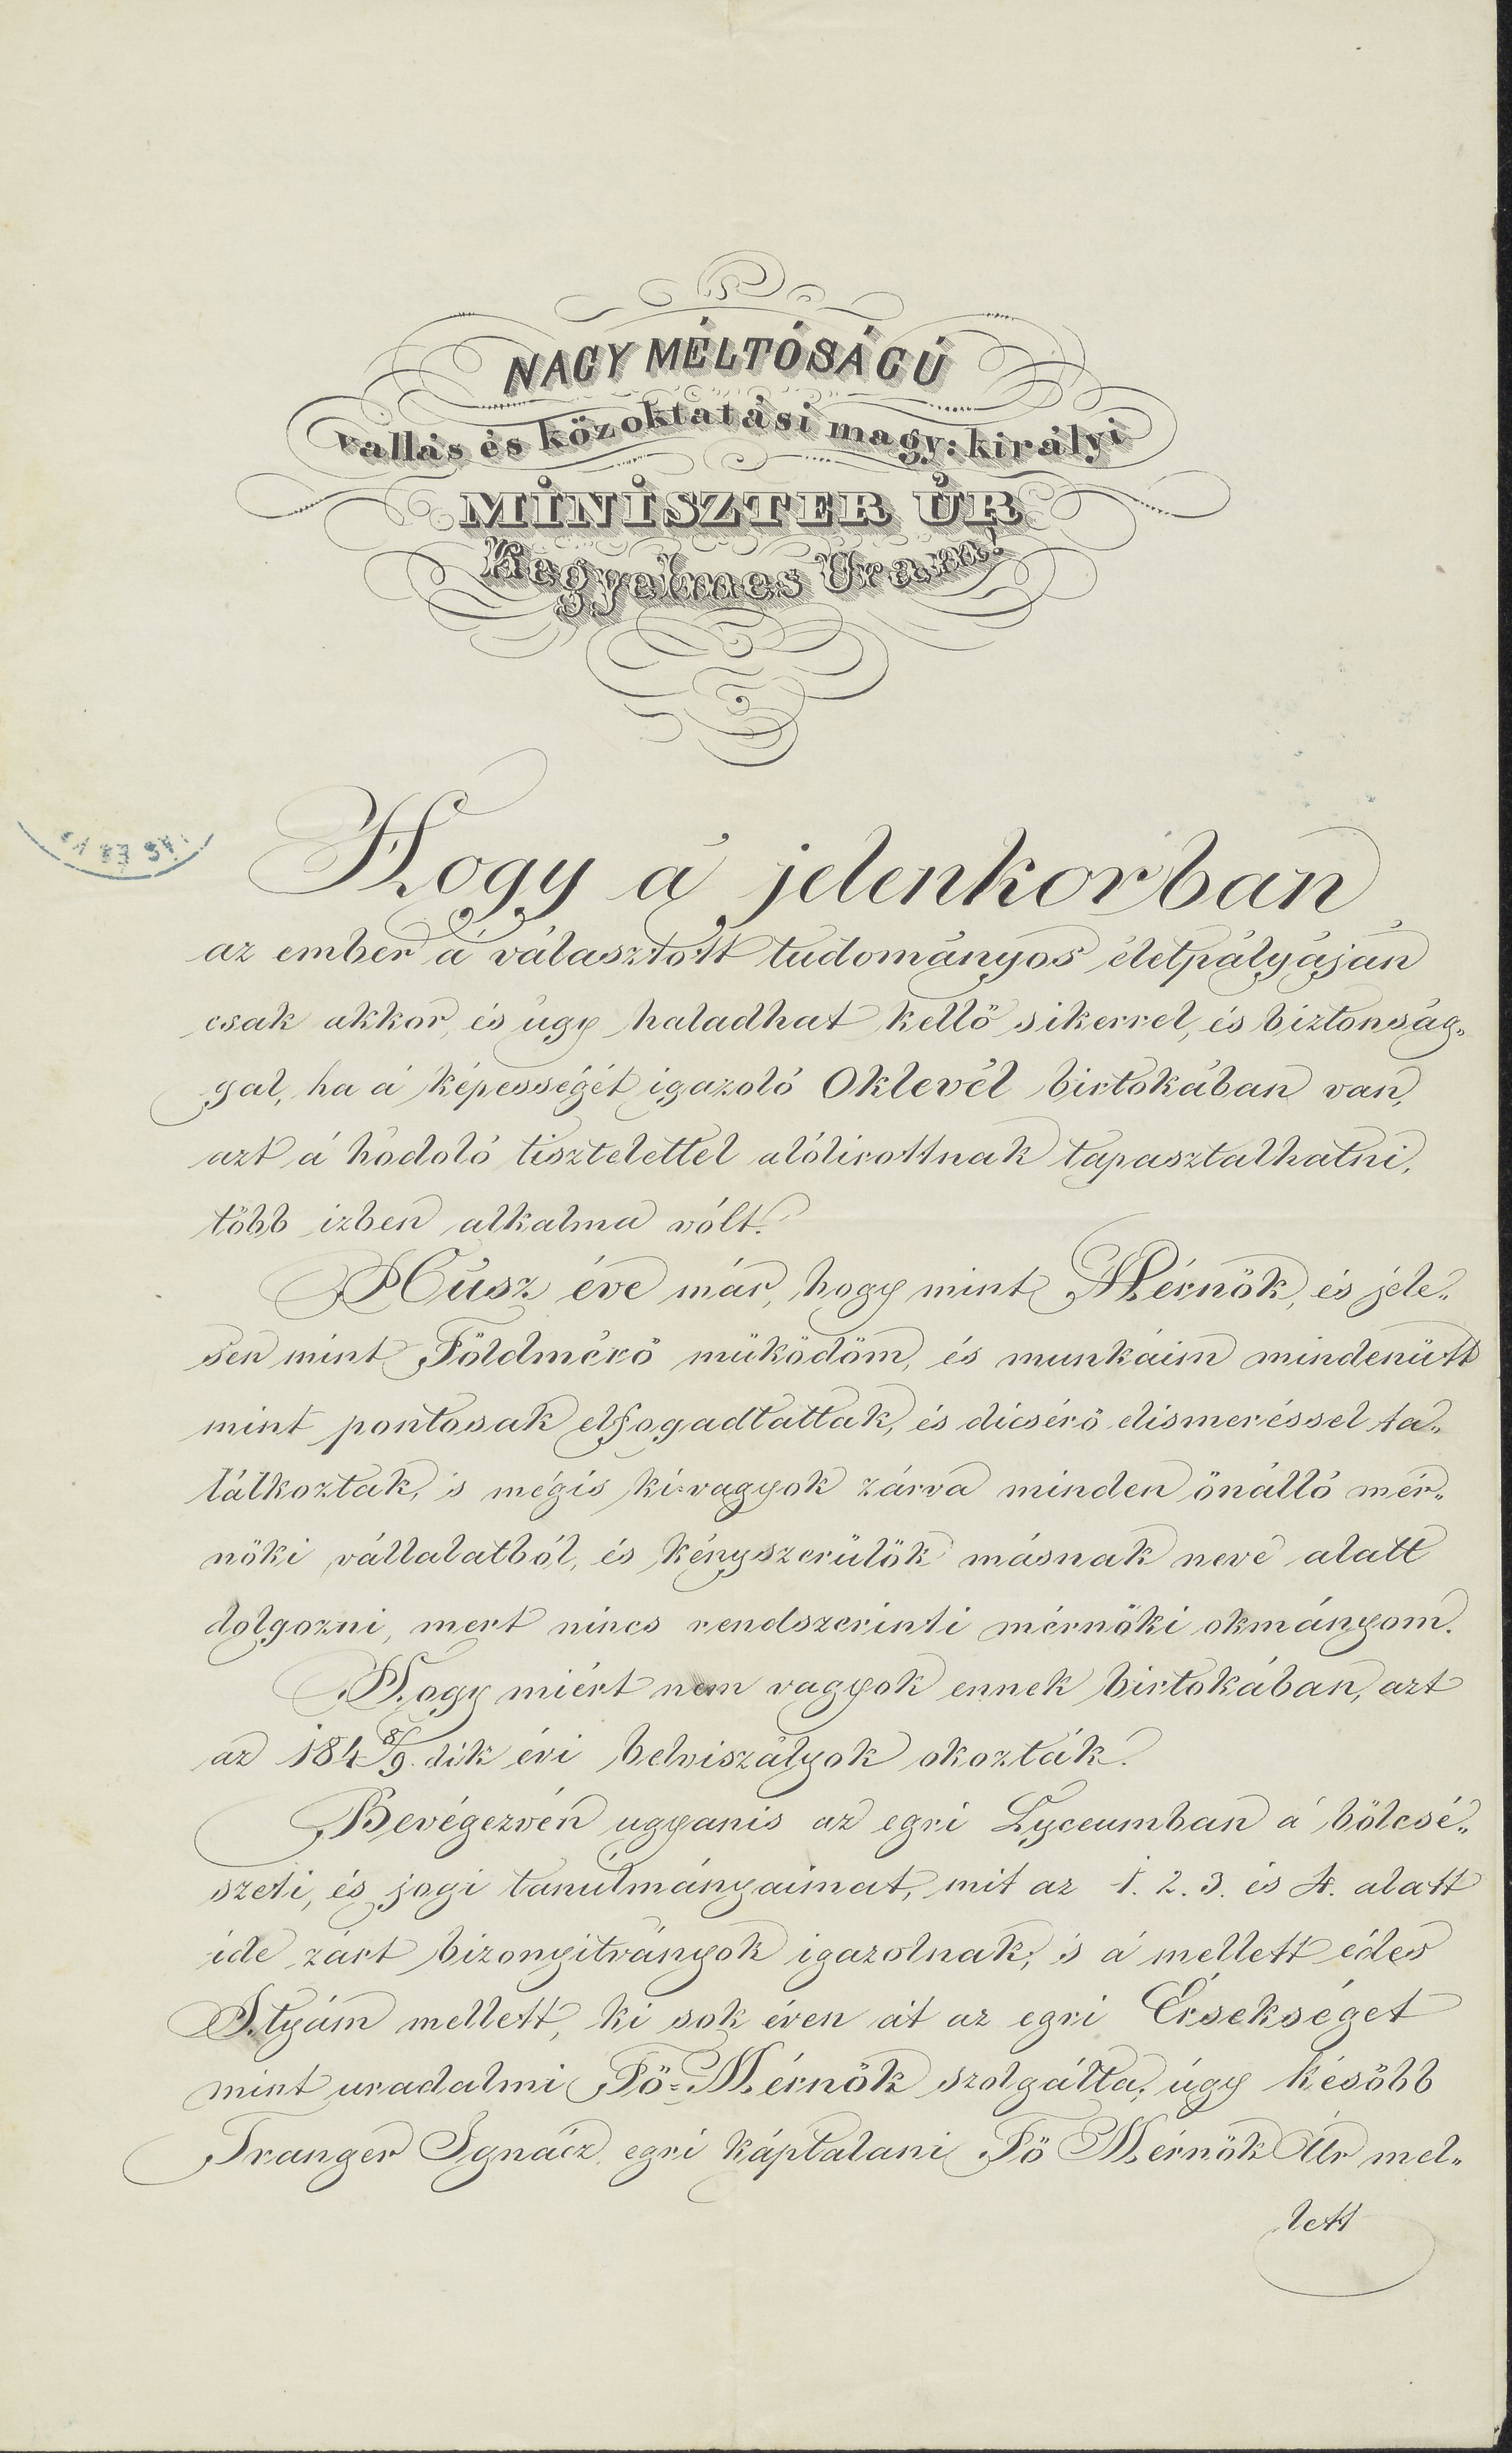 NAGY MÉLTÓSÁGÚ
vallás és közoktatási magy: királyi
MINISZTER ÚR
Kegyelmes Uram!
Hogy a' jelenkorban
az ember a' választott tudományos életpályáján
csak akkor, és úgy haladhat kellő sikerrel, és biztonság„
gal, ha a' képességét igazoló Oklevél birtokában van,
azt a' hódoló tisztelettel alólirottnak tapasztalhatni,
több izben alkalma vólt.
Húsz éve már, hogy mint Mérnök, és jele„
sen mint Földmérő működöm, és munkáim mindenütt
mint pontosak elfogadtattak, és dicsérő elismeréssel ta„
lálkoztak, 's mégis ki vagyok zárva minden önálló mér„
nöki vállalatból, és kényszerülök másnak neve alatt
dolgozni, mert nincs rendszerinti mérnöki okmányom.
Hogy miért nem vagyok ennek birtokában, azt
az 1848/9. dik évi belviszályok okozták.
Bevégezvén ugyanis az egri Lyceumban a' bölcsé„
szeti, és jogi tanúlmányaimat, mit az 1. 2. 3. és 4. alatt
ide zárt bizonyitványok igazolnak, 's a' mellett édes
Atyám mellett, ki sok éven át az egri Érsekséget
mint uradalmi Fő-Mérnök szolgálta, úgy később
Tranger Ignácz egri káptalani Fő Mérnök Úr mel„
lett